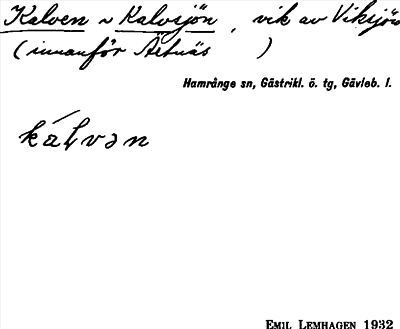 Kalven v Kalvsjön, vik av Viksjön
(innanför Ärtnäs )
Hamrånge sn, Gästrikl. ö. tg, Gävleb. l.
kálvən
EMIL LEMHAGEN 1932